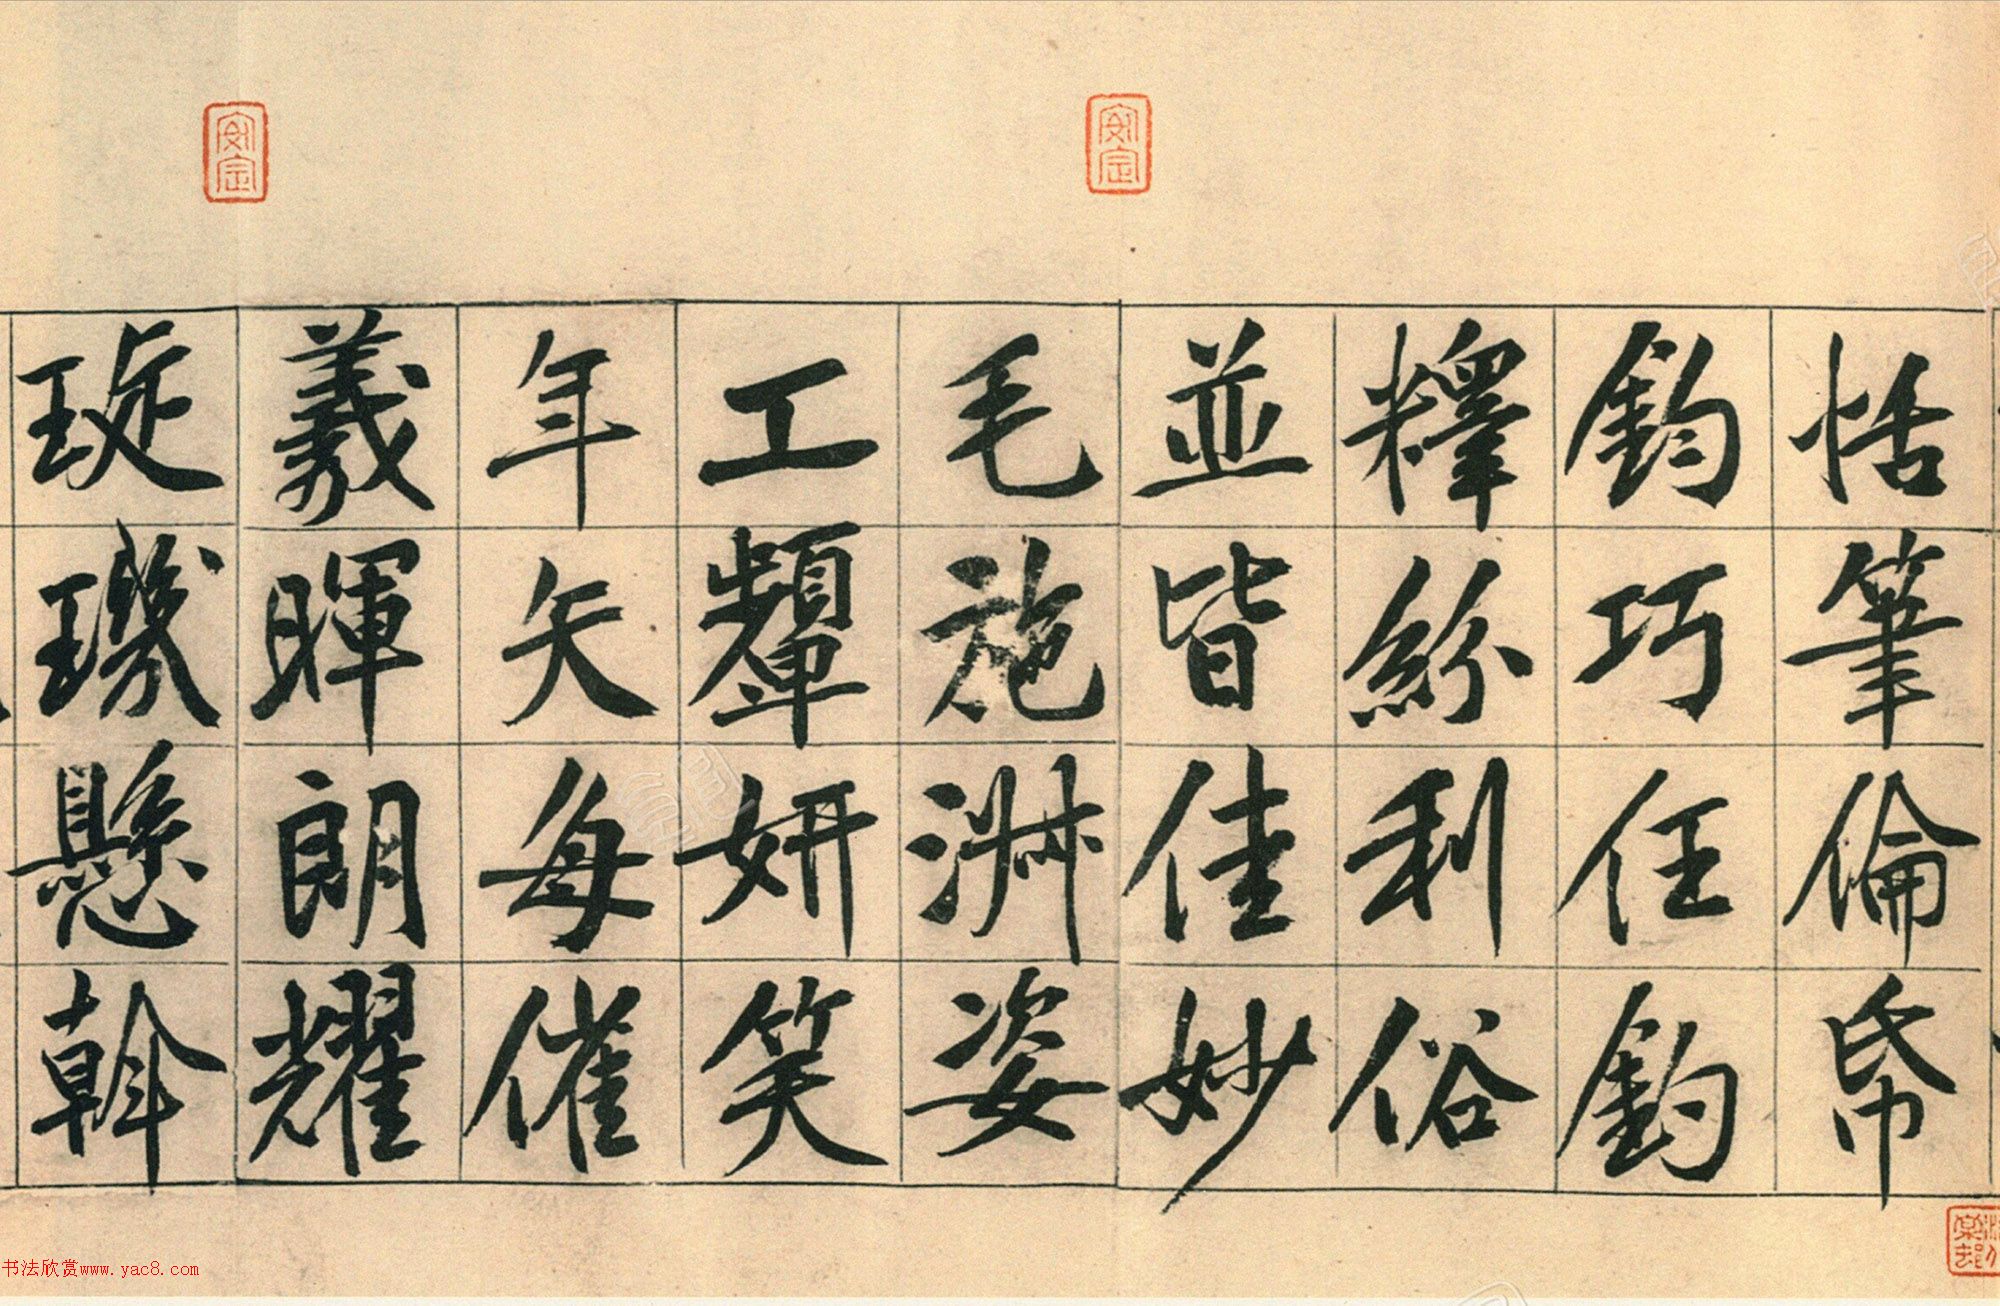 恬筆倫帋
鈞巧任釣
釋紛利俗
並皆佳妙
毛施淑姿
工顰妍笑
年矢每催
羲暉朗耀
琁璣懸斡
安定
安定
书法欣赏www.yac8.com